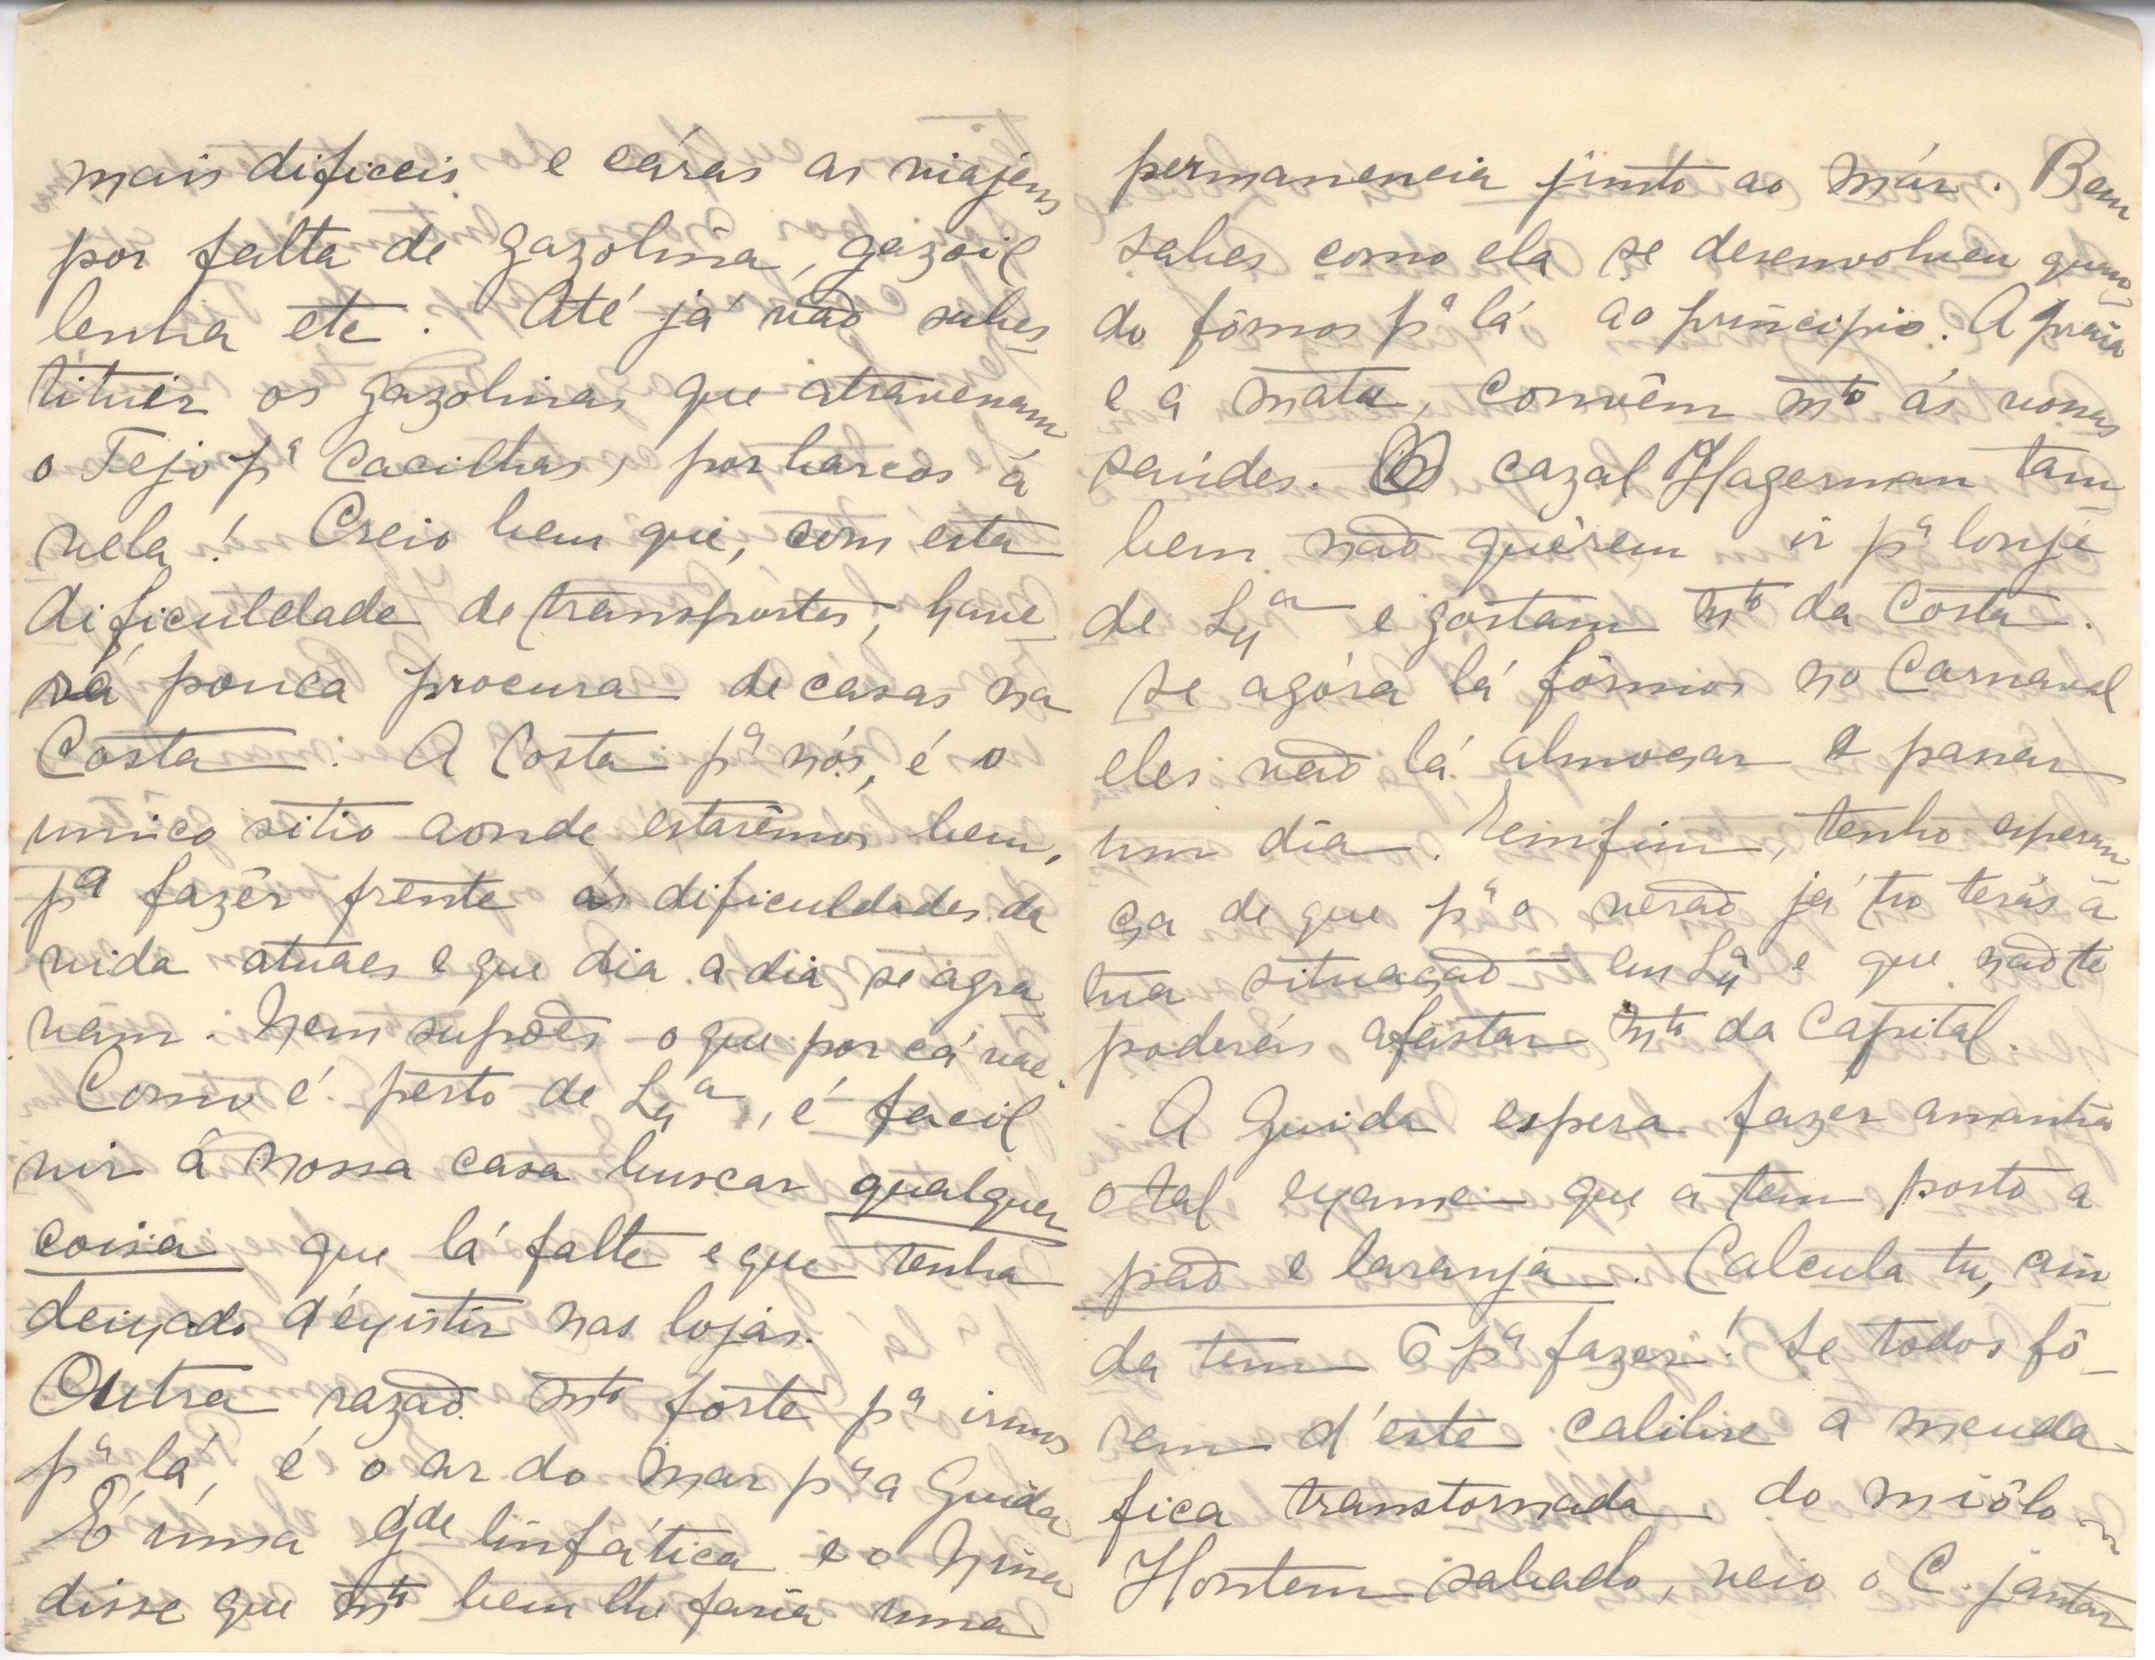 mais dificeis e cáras as viajens
por falta de gazolina, gazoil
lenha etc. Até já vão subs-
tituir os gazolinas que atravessam
o Tejo pª Cacilhas, por barcos á
vela! Creio bem que, com esta
dificuldade de transportes, have-
rá pouca procura de casas na
Costa. A Costa pª nós, é o
unico sitio aonde estarêmos bem,
pª fazêr frente ás dificuldades da
vida atuaes e que dia a dia se agra-
vam. Nem supões o que por cá vae.
Como é perto de Lxª, é facil
vir á nossa casa buscar qualquer
coisa que lá falte e que tenha
deixado d'existir nas lojas.
Outra razão mto forte pª irmos
pª lá, é o ar do mar pª a Guida
É uma gde linfática e o
disse que mto bem lhe faria uma
permanencia junto ao már. Bem
sabes como ela se desenvolveu quan-
do fômos pª lá ao principio. A praia
e a mata, convêm mto ás vossas
saúdes. O cazal Hagerman tam
bem não quérem ir pª longe
de Lxª e gostam mto da Costa.
Se agóra lá fôrmos no Carnaval
eles vão lá almoçar e passar
um dia. Emfim, tenho esperan
ça de que pª o verão já tu terás a
tua situação em Lxª e que não te
poderás afastar mto da Capital.
A Guida espera fazer amanhã
o tal exame que a tem posto a
pão e laranja. Calcula tu, ain
da tem 6 pª fazer! Se todos fô-
rem d'este calibre a meuda
fica transtornada do miôlo
Hontem sabado, veio o C. jantar